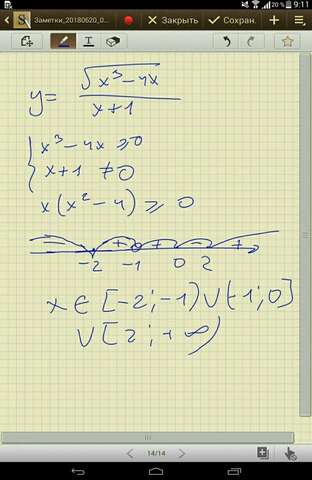 20 % 9:11
Заметки_20180620_0... Закрыть Сохран.
y = √(x³ - 4x) / (x + 1)
x³ - 4x ≥ 0
x + 1 ≠ 0
x(x² - 4) ≥ 0
- + + - +
-2 -1 0 2
x ∈ [-2; -1) ∪ (-1; 0]
∪ [2; +∞)
14/14